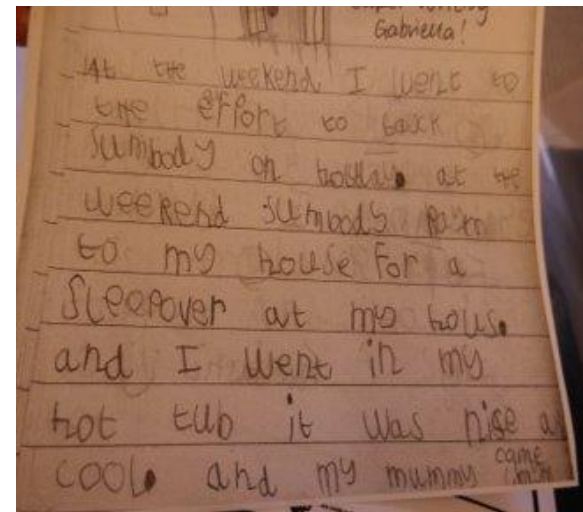 Gabriella!
At the weekend I went to
the effort to
sumbody on holiday. at the
weekend sumbody
to my house for a
sleepover at my hous.
and I went in my
hot tub it was nise a
cool. and my mummy came